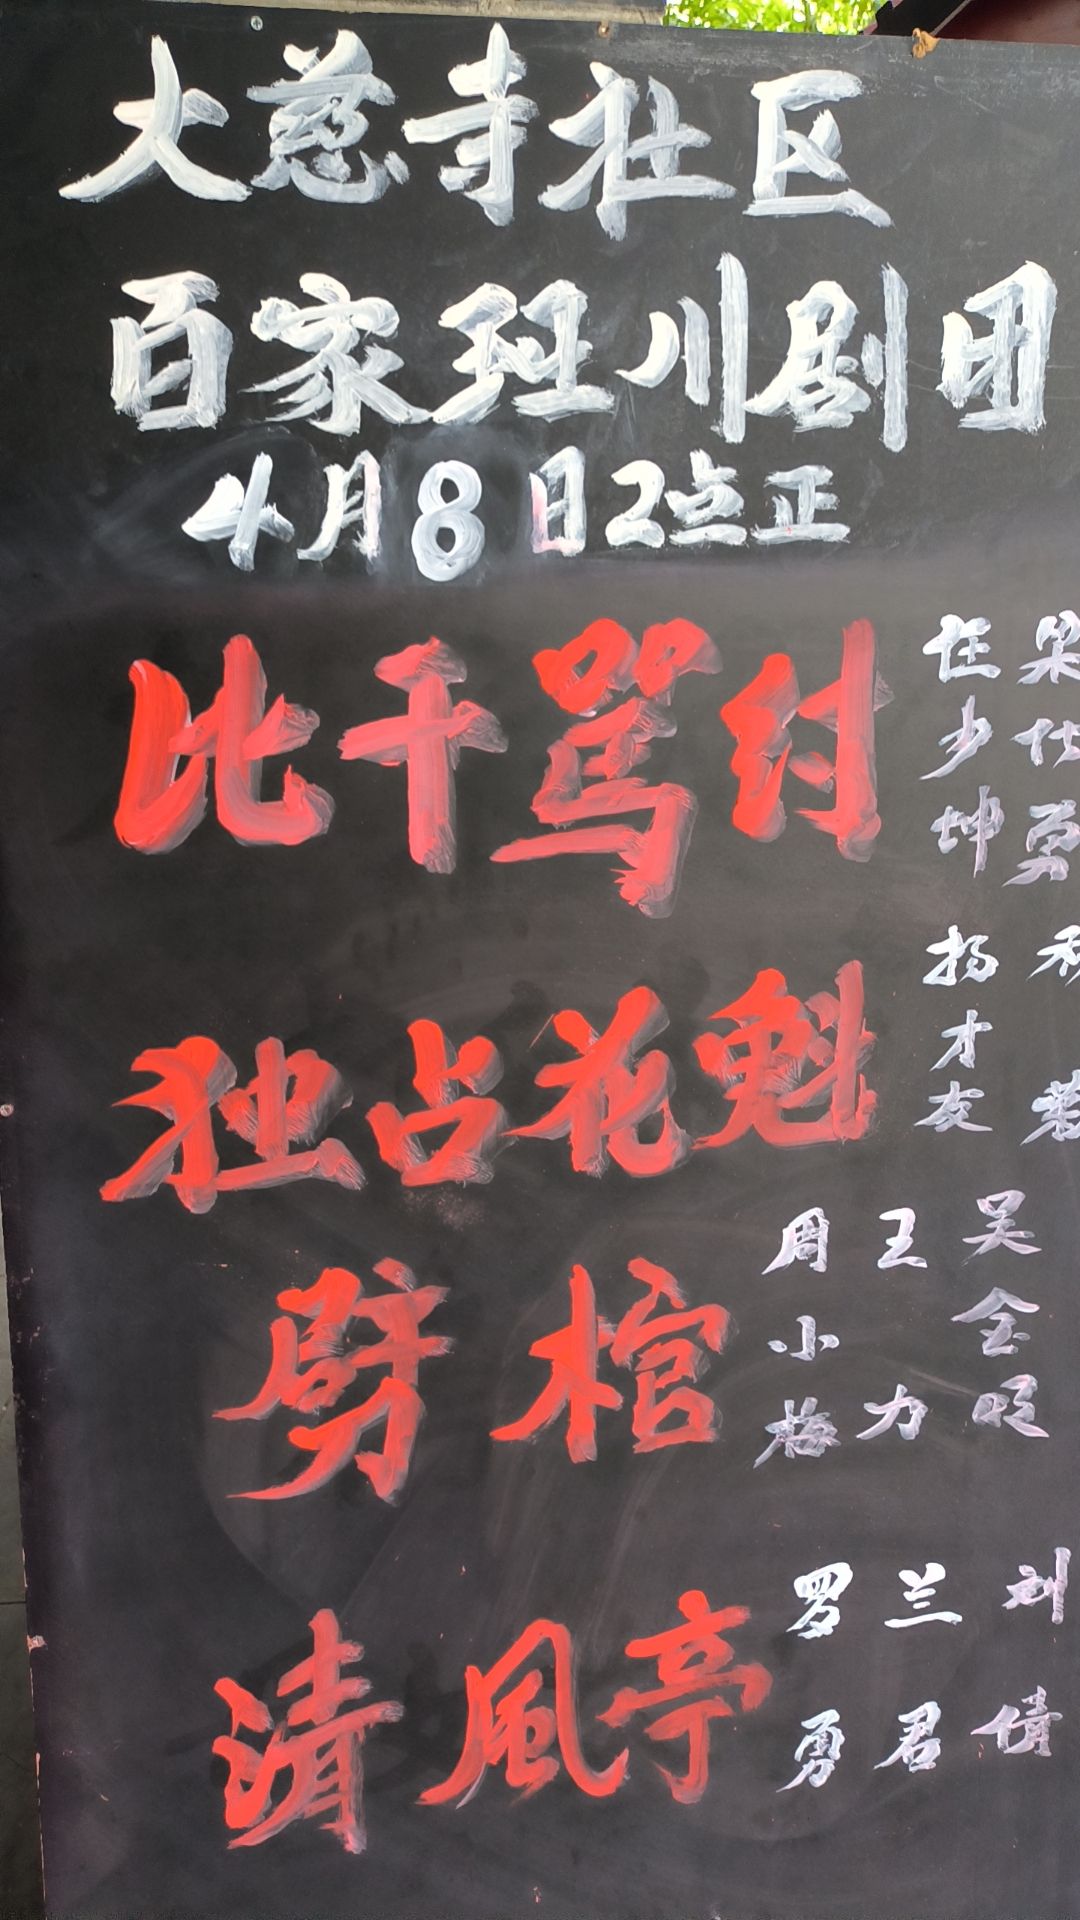 大慈寺社区
百家班川剧团
4月8日2点正
比干骂纣
任少坤
梁仕勇
独占花魁
扬才友
劈棺
周小梅
王力
吴金旺
清風亭
罗勇
兰君
刘倩